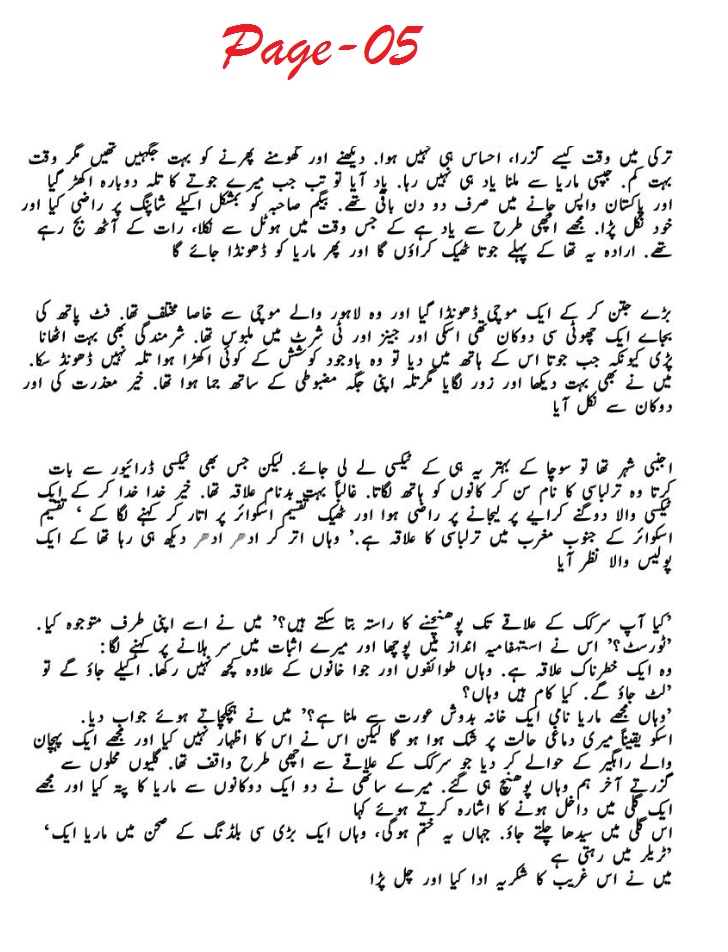 Page-05
ترکی میں وقت کیسے گزرا، احساس ہی نہیں ہوا. دیکھنے اور گھومنے پھرنے کو بہت جگہیں تھیں مگر وقت
بہت کم. جپسی ماریا سے ملنا یاد ہی نہیں رہا. یاد آیا تو تب جب میرے جوتے کا تلہ دوبارہ اکھڑ گیا
اور پاکستان واپس جانے میں صرف دو دن باقی تھے. بیگم صاحبہ کو بمشکل اکیلے شاپنگ پر راضی کیا اور
خود نکل پڑا. مجھے اچھی طرح سے یاد ہے کے جس وقت میں ہوٹل سے نکلا، رات کے آٹھ بج رہے
تھے. ارادہ یہ تھا کے پہلے جوتا ٹھیک کراؤں گا اور پھر ماریا کو ڈھونڈا جائے گا
بڑے جتن کر کے ایک موچی ڈھونڈا گیا اور وہ لاہور والے موچی سے خاصا مختلف تھا. فٹ پاتھ کی
بجاے ایک چھوٹی سی دوکان تھی اسکی اور جینز اور ٹی شرٹ میں ملبوس تھا. شرمندگی بھی بہت اٹھانا
پڑی کیونکہ جب جوتا اس کے ہاتھ میں دیا تو وہ باوجود کوشش کے کوئی اکھڑا ہوا تلہ نہیں ڈھونڈ سکا.
میں نے بھی بہت دیکھا اور زور لگایا مگرتلہ اپنی جگہ مضبوطی کے ساتھ جما ہوا تھا. خیر معذرت کی اور
دوکان سے نکل آیا
اجنبی شہر تھا تو سوچا کے بہتر یہ ہی کے ٹیکسی لے لی جائے. لیکن جس بھی ٹیکسی ڈرائیور سے بات
کرتا وہ ترلباسی کا نام سن کر کانوں کو ہاتھ لگاتا. غالباً بہت بدنام علاقہ تھا. خیر خدا خدا کر کے ایک
ٹیکسی والا دوگنے کرایے پر لیجانے پر راضی ہوا اور ٹھیک تقسیم اسکوائر پر اتار کر کہنے لگا کے ' تقسیم
اسکوائر کے جنوب مغرب میں ترلباسی کا علاقہ ہے.' وہاں اتر کر ادھر ادھر دیکھ ہی رہا تھا کے ایک
پولیس والا نظر آیا
'کیا آپ سرکک کے علاقے تک پوھنچنے کا راستہ بتا سکتے ہیں؟' میں نے اسے اپنی طرف متوجوہ کیا.
'ٹورسٹ؟' اس نے استہفامیہ انداز میں پوچھا اور میرے اثبات میں سر ہلانے پر کہنے لگا:
وہ ایک خطرناک علاقہ ہے. وہاں طوائفوں اور جوا خانوں کے علاوہ کچھ نہیں رکھا. اکیلے جاؤ گے تو
'لٹ جاؤ گے. کیا کام ہیں وہاں؟
'وہاں مجھے ماریا نامی ایک خانہ بدوش عورت سے ملنا ہے؟' میں نے ہچکچاتے ہوئے جواب دیا.
اسکو یقیناً میری دماغی حالت پر شک ہوا ہو گا لیکن اس نے اس کا اظہار نہیں کیا اور مجھے ایک پہچان
والے راہگیر کے حوالے کر دیا جو سرکک کے علاقے سے اچھی طرح واقف تھا. گلیوں محلوں سے
گزرتے آخر ہم وہاں پوھنچ ہی گئے. میرے ساتھی نے دو ایک دوکانوں سے ماریا کا پتہ کیا اور مجھے
ایک گلی میں داخل ہونے کا اشارہ کرتے ہوئے کہا
اس گلی میں سیدھا چلتے جاؤ. جہاں یہ ختم ہوگی، وہاں ایک بڑی سی بلڈنگ کے صحن میں ماریا ایک'
'ٹریلر میں رہتی ہے
میں نے اس غریب کا شکریہ ادا کیا اور چل پڑا